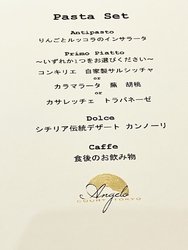 Pasta Set
Antipasto
りんごとルッコラのインサラータ
Primo Piatto
～いずれか1つをお選びください～
コンキリエ 自家製サルシッチャ
or
カラマラータ 蕪 胡桃
or
カサレッチェ トラパネーゼ
Dolce
シチリア伝統デザート カンノーリ
Caffe
食後のお飲み物
Angelo
COURT TOKYO